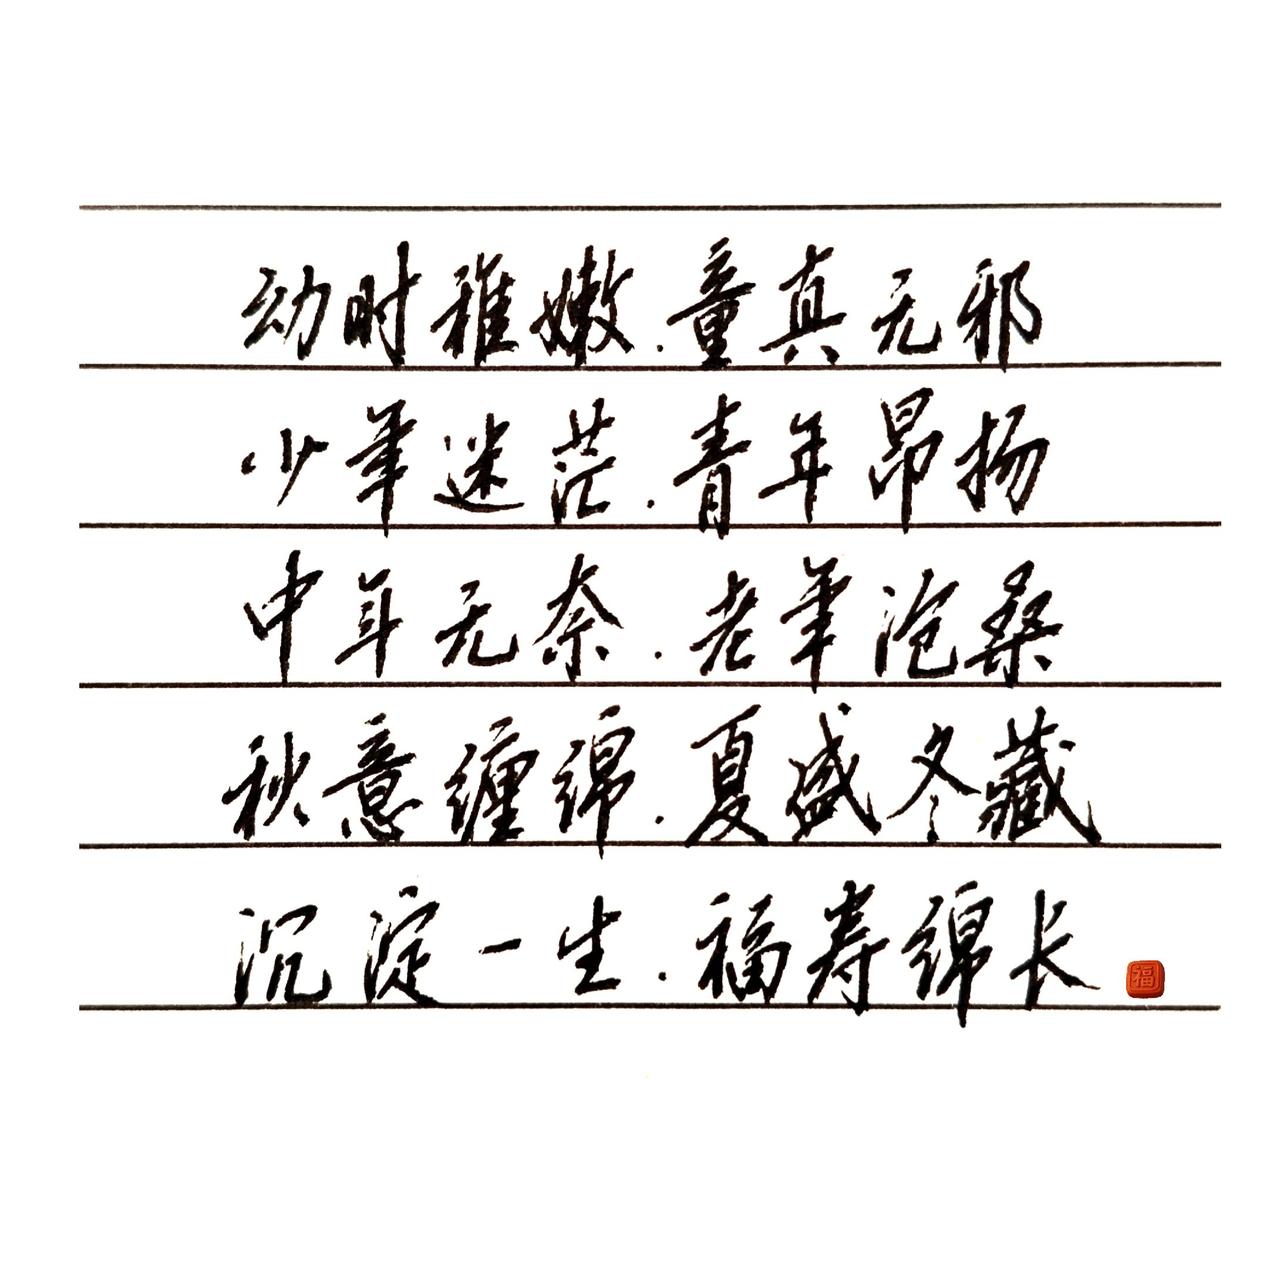 幼时稚嫩.童真无邪
少年迷茫.青年昂扬
中年无奈.老年沧桑
秋意缠绵.夏盛冬藏
沉淀一生.福寿绵长
福